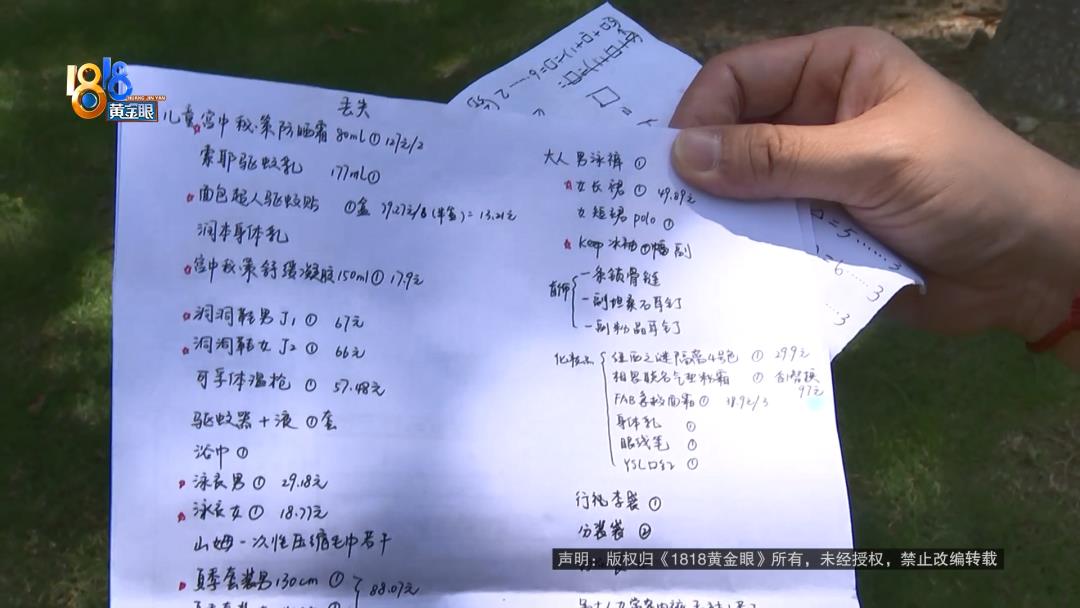 1818
HUANG JIN YAN
黄金眼
丢失
儿童 宫中秘策防晒霜 80ml ① 127元/2
索耶驱蚊乳 177ml①
面包超人驱蚊贴 ①盒 39.27元/8(半盒)=13.21元
润本身体乳
宫中秘策舒缓凝胶150ml① 17.9元
洞洞鞋男 J1 ① 67元
洞洞鞋女 J2 ① 66元
可孚体温枪 ① 57.48元
驱蚊器+液 ①套
浴巾 ①
泳衣男 ① 29.18元
泳衣女 ① 18.77元
山姆一次性压缩毛巾若干
夏季套装男130cm ① 88.07元
大人 男泳裤 ①
女长裙 ① 49.89元
女短裙 polo ①
Keep 冰袖 ①副
首饰 一条锁骨链
一副坦桑石耳钉
一副粉晶耳钉
化妆品 ① 299元
相宜联名气垫粉霜 ① 含替换 97元
FAB 面霜 ① 38.9元/3
身体乳 ①
眼线笔 ①
YSL口红 ①
行礼李袋 ①
分装袋 ②
=5……
=6……3
……3
声明：版权归《1818黄金眼》所有，未经授权，禁止改编转载